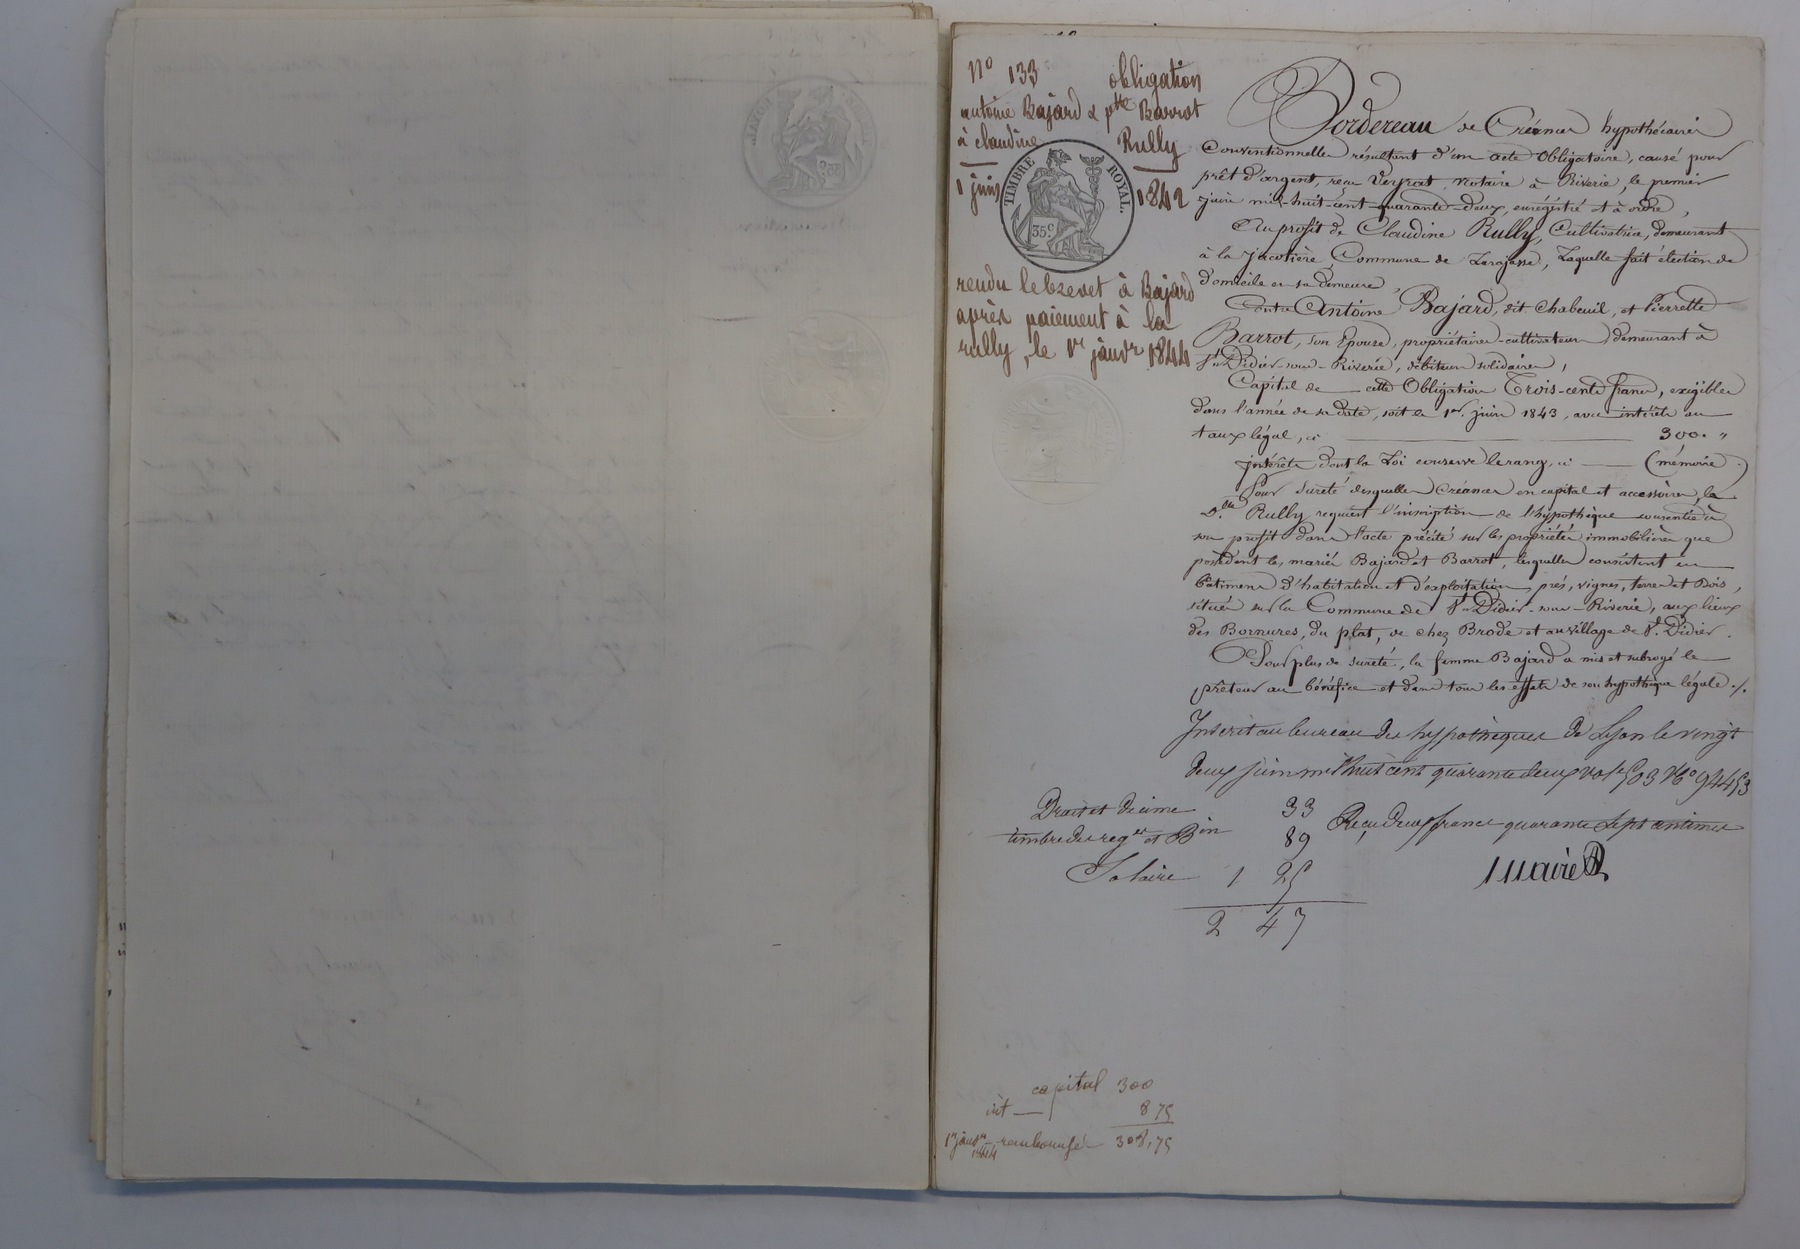 N° 133 obligation
antoine Bajard & p.tte Barrot
à claudine Rully
1 juin 1842
TIMBRE ROYAL.
35 c
rendu le brevet à Bajard
après paiement à la
rully, le 1er janvr 1844
Bordereau de Créance hypothécaire
Conventionnelle résultant d'un acte obligatoire, causé pour
prêt d'argent, reçu Veyrat, notaire à Riverie, le premier
juin mil-huit-cent-quarante-deux, enregistré et à ordre,
Au profit de Claudine Rully, Cultivatrice, demeurant
à la Jacotière, Commune de Larajasse, Laquelle fait élection de
domicile en sa demeure,
Contre Antoine Bajard, dit Chabeuil, et Pierrette
Barrot, son Epouse, propriétaires-cultivateurs, demeurant à
St Didier-sous-Riverie, débiteurs solidaires,
Capital de cette Obligation Trois-cents francs, exigible
dans l'année de sa date, soit le 1er juin 1843, avec intérêts au
taux légal, ci 300. "
Intérêts dont la Loi conserve le rang, ci (mémoire.)
Pour sureté desquelles Créances en capital et accessoires, la
D.lle Rully requiert l'inscription de l'hypothèque consentie à
son profit dans l'acte précité sur les propriétés immobilières que
possèdent les mariés Bajard et Barrot, lesquelles consistent en
bâtimens d'habitation et d'exploitation, prés, vignes, terres et Bois,
situés sur la Commune de St Didier-sous-Riverie, aux lieux
des Bornures, du plat, de chez Brode et au village de St. Didier.
Pour plus de sureté, la femme Bajard a mis et subrogé le
prêteur au bénéfice et dans tous les effets de son hypothèque légale ./.
Inscrit au bureau des hypothèques de Lyon le vingt
deux juin mil huit cent quarante deux vol 503 N° 94453
Droit et décime 33
timbre des reg.es et B.on 89
Salaire 1 25
2 47
Reçu deux francs quarante sept centimes
capital 300
int 8 75
1er janvr 1844 remboursé 308,75